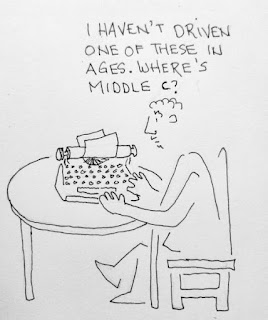 I HAVEN'T DRIVEN
ONE OF THESE IN
AGES. WHERE'S
MIDDLE C?